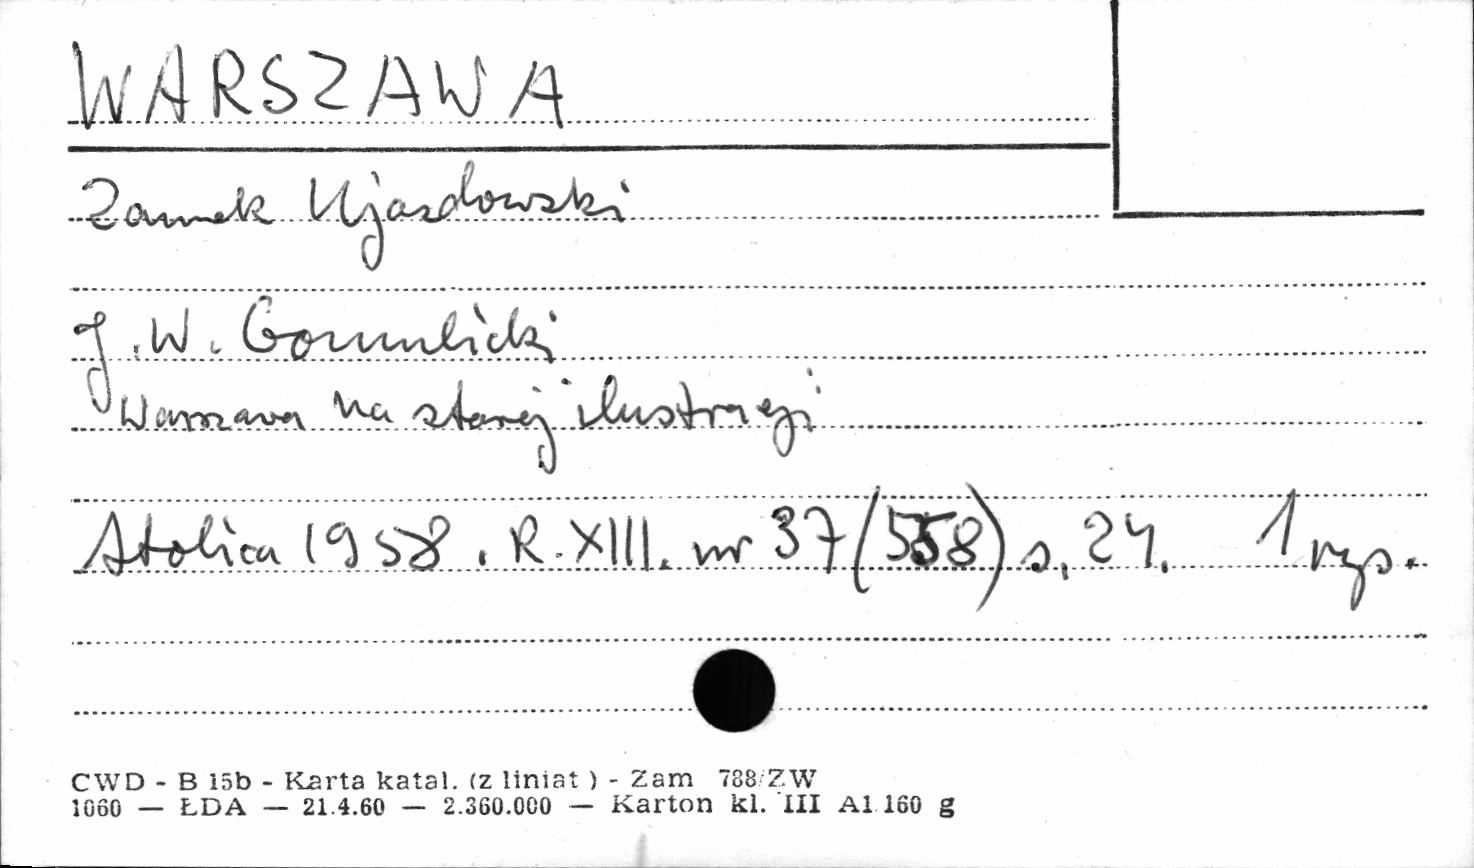 WARSZAWA
Zamek Ujazdowski
J. W. Gomulicki
Warszawa na starej ilustracji
Stolica 1958. R. XIII. nr 37 (558) s. 24. 1 rys.
CWD - B 15b - Karta katal. (z liniat ) - Zam 788/ZW
1060 — ŁDA — 21.4.60 — 2.360.000 — Karton kl. III A1 160 g